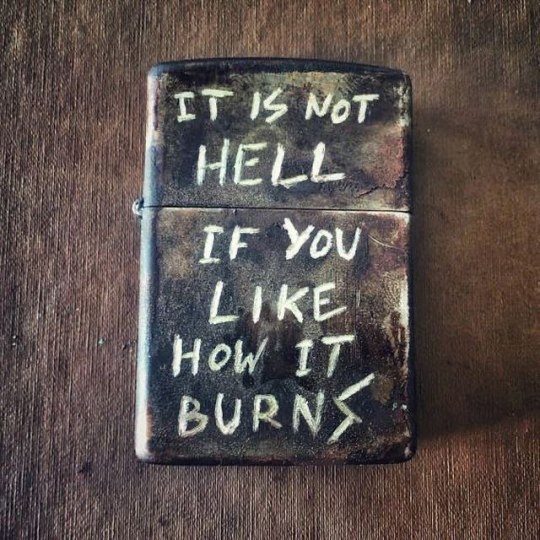 IT IS NOT
HELL
IF YOU
LIKE
HOW IT
BURNS